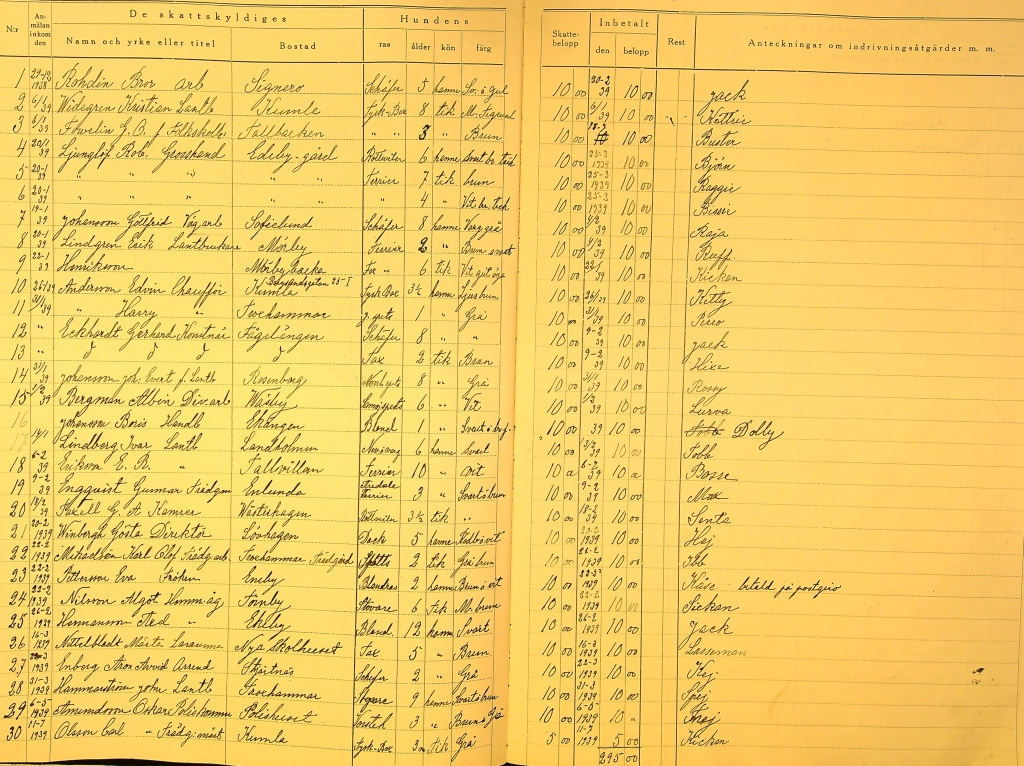 De skattskyldiges Hundens Inbetalt
N:r Anmälan inkom den Namn och yrke eller titel Bostad ras ålder kön färg Skattebelopp den belopp Rest Anteckningar om indrivningsåtgärder m. m.
1 29-12 1938 Rohdin Bror arb Signero Schäfer 5 hanne 10 00 30-2 39 10 00 Jack
2 6/1 39 Widegren Kristian Lantb Kumla Tysk-Box 8 tik 10 00 6/1 39 10 00
3 6/1 39 G. O. f Folkskoll Tallbacken " " 3 " Brun 10 00 10 00 Buster
4 20/1 39 Ljunglöf Rob. Grosshand Edeby-gård Rottviler 6 hanne svart br. teck 10 00 25-3 1939 10 00 Björn
5 20-1 39 " " " " " Terrier 7 tik brun 10 00 25-3 1939 10 00 Raggie
6 20-1 39 " " " " " " 4 " Vit br. teck 10 00 25-3 1939 10 00 Bissie
7 19-1 39 Johansson Gottfrid Väg arb Sofielund Schäfer 8 hanne Varg grå 10 00 4/2 39 10 00 Raja
8 20-1 39 Lindgren Erik Lantbrukare Mörby Terrier 2 " Brun svart 10 00 4/2 39 10 00
9 22-1 39 Henriksson Mörby backa Fox " 6 tik Vit gul öga 10 00 39 10 00 Kickan
10 26/1 39 Andersson Edvin Chaufför Kumla Tysk Box 3½ hanne Ljusbrun 10 00 39 10 00 Ketty
11 31/1 39 " Harry " Ivochammar 1 " Grå 10 00 31/1 39 10 00
12 " Eckhardt Gerhard Konstnär Fågelängen Schäfer 8 " " 10 00 9-2 39 10 00 Jack
13 " d d d Tax 2 tik Brun 10 00 9-2 39 10 00 Hixe
14 31/1 39 Johansson Joh. Evert f. Lantb Rosenborg 8 " Grå 10 00 31/1 39 10 00 Rossy
15 1/2 39 Bergman Albin Div. arb Wäsby 6 " Vit 10 00 1/2 39 10 00 Lurva
16 Johansson Boris Handb Ekängen Bland 1 " 10 00 39 10 00 Dolly
17 19/1 Lindberg Ivar Lantb Landholmen 6 hanne svart 10 00 39 10 00 Tobb
18 6-2 39 Erikson E. R. " Tallvillan Terrier 10 " vit 10 00 6-2 39 10 00 Bosse
19 9-2 39 Engquist Gunnar Trädgm Enlunda Airdale Terrier 3 " Svart o brun 10 00 9-2 39 10 00 Max
20 18/2 39 Faxell G. A Kamrer Wästerhagen Rottviler 3½ tik " 10 00 18-2 39 10 00 Senta
21 20-2 1939 Winbergh Gösta Direktör Lövhagen 5 hanne 10 00 20-2 1939 10 00 Haj
22 22-2 1939 Karl Olof Trädg. arb. Ivochammar Trädgård 2 tik Grå brun 10 00 22-2 1939 10 00 Ibb
23 22-2 1939 Pettersson Eva Fröken Ensby Blandras 2 hanne Brun o vit 10 00 22-2 1939 10 00 betald på postgiro
24 22-2 1939 Nilsson Algot Hemm-äg Tomby Stövare 6 tik 10 00 22-2 1939 10 00 Sickan
25 26-2 1939 Hermansson Ted " Ekeby Bland. 12 hanne Svart 10 00 26-2 1939 10 00 Jack
26 16-3 1939 Nettelbladt Märta Lärarinna Nya skolhuset Tax 5 " Brun 10 00 16-3 1939 10 00 Lasseman
27 1939 Enberg Aron Arvid Arrend Skärtnäs Schäfer 2 " Grå 10 00 22-3 1939 10 00 Kej
28 31-3 1939 Hammarström John Lantb Ivochammar 9 hanne Svart o brun 10 00 31-3 1939 10 00
29 6-5 1939 Amundsson Oskar Poliskonm Polishuset Vorsteh 3 " Brun o Grå 10 00 6-5 1939 10 "
30 11-7 1939 Olsson Carl " Trädg-mäst Kumla Tysk-Box tik Grå 5 00 11-7 1939 5 00 Kickan
295 00